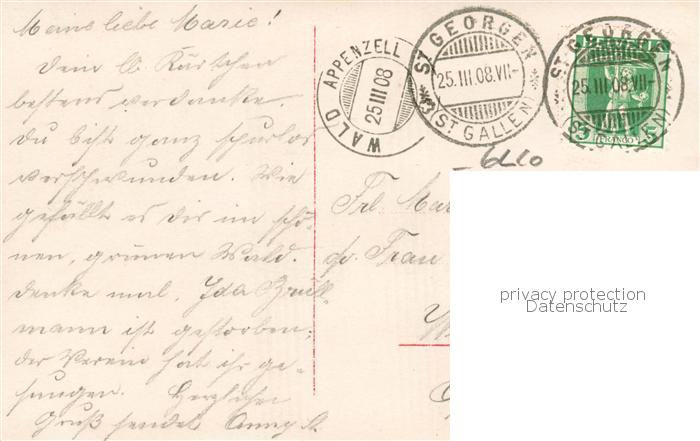 Meine liebe Marie!
Dein lb. Kärtchen
bestens verdanke.
Du bist ganz spurlos
verschwunden. Wie
gefällt es dir im schö-
nen, grünen Wald.
denke mal, Ida Brüll-
mann ist gestorben;
der Verein hat ihr ge-
sungen. Herzlichen
Gruß sendet Anny St.
WALD APPENZELL
25 III 08
ST GEORGEN
25.III.08.VII-
(ST GALLEN)
ST GEORGEN
25.III.08.VII-
(ST GALLEN)
5
Frl. Mar
p. Frau
privacy protection
Datenschutz